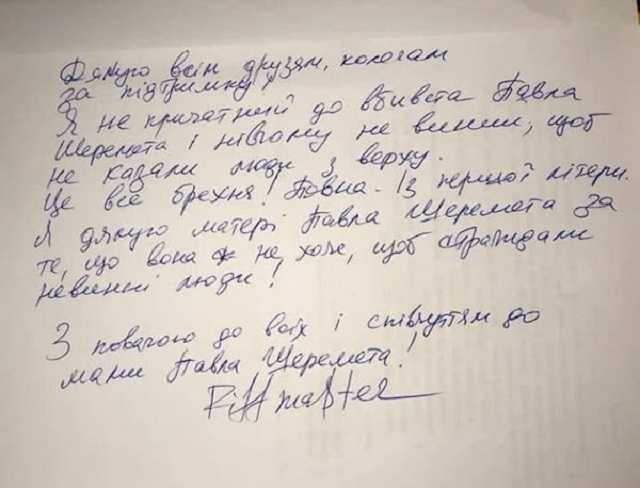 Дякую всім друзям, кологам
за підтримку!
Я не причатний до вбивста Павла
Шеремета і нівчому не винин, щоб
не казали люди з верху.
Це все брехня! Повна. Із першої літери.
Я дякую матері Павла Шеремета за
те, що вона не хоче, щоб страждали
невинні люди!
З повагою до всіх і співчуттям до
мами Павла Шеремета!
Riffmaster